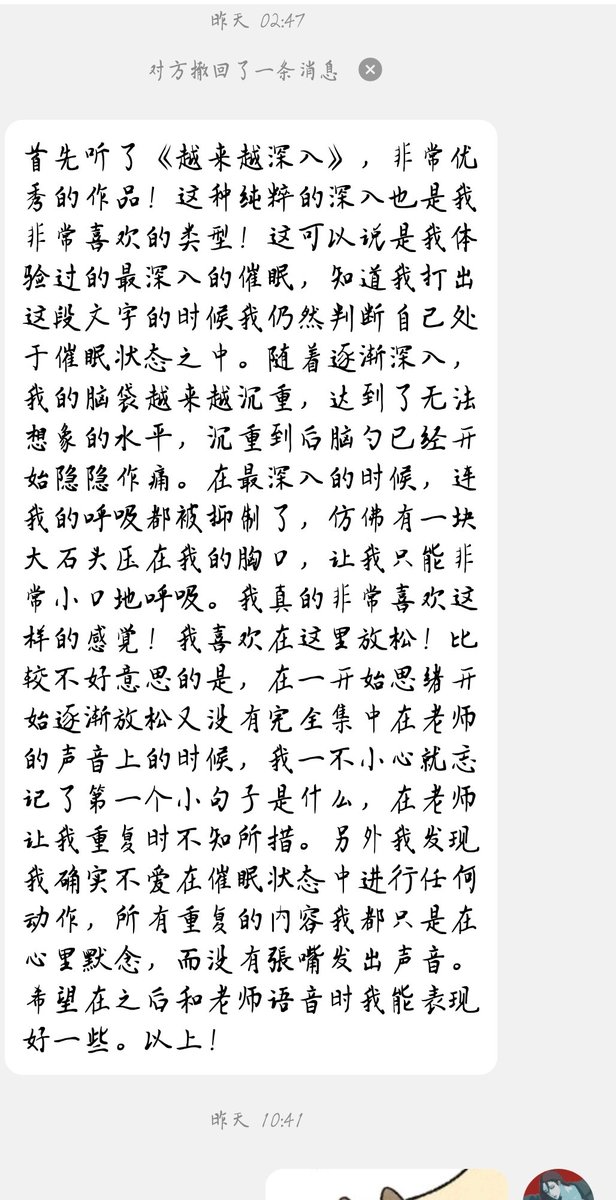 昨天 02:47
对方撤回了一条消息
首先听了《越来越深入》，非常优
秀的作品！这种纯粹的深入也是我
非常喜欢的类型！这可以说是我体
验过的最深入的催眠，知道我打出
这段文字的时候我仍然判断自己处
于催眠状态之中。随着逐渐深入，
我的脑袋越来越沉重，达到了无法
想象的水平，沉重到后脑勺已经开
始隐隐作痛。在最深入的时候，连
我的呼吸都被抑制了，仿佛有一块
大石头压在我的胸口，让我只能非
常小口地呼吸。我真的非常喜欢这
样的感觉！我喜欢在这里放松！比
较不好意思的是，在一开始思绪开
始逐渐放松又没有完全集中在老师
的声音上的时候，我一不小心就忘
记了第一个小句子是什么，在老师
让我重复时不知所措。另外我发现
我确实不爱在催眠状态中进行任何
动作，所有重复的内容我都只是在
心里默念，而没有張嘴发出声音。
希望在之后和老师语音时我能表现
好一些。以上！
昨天 10:41